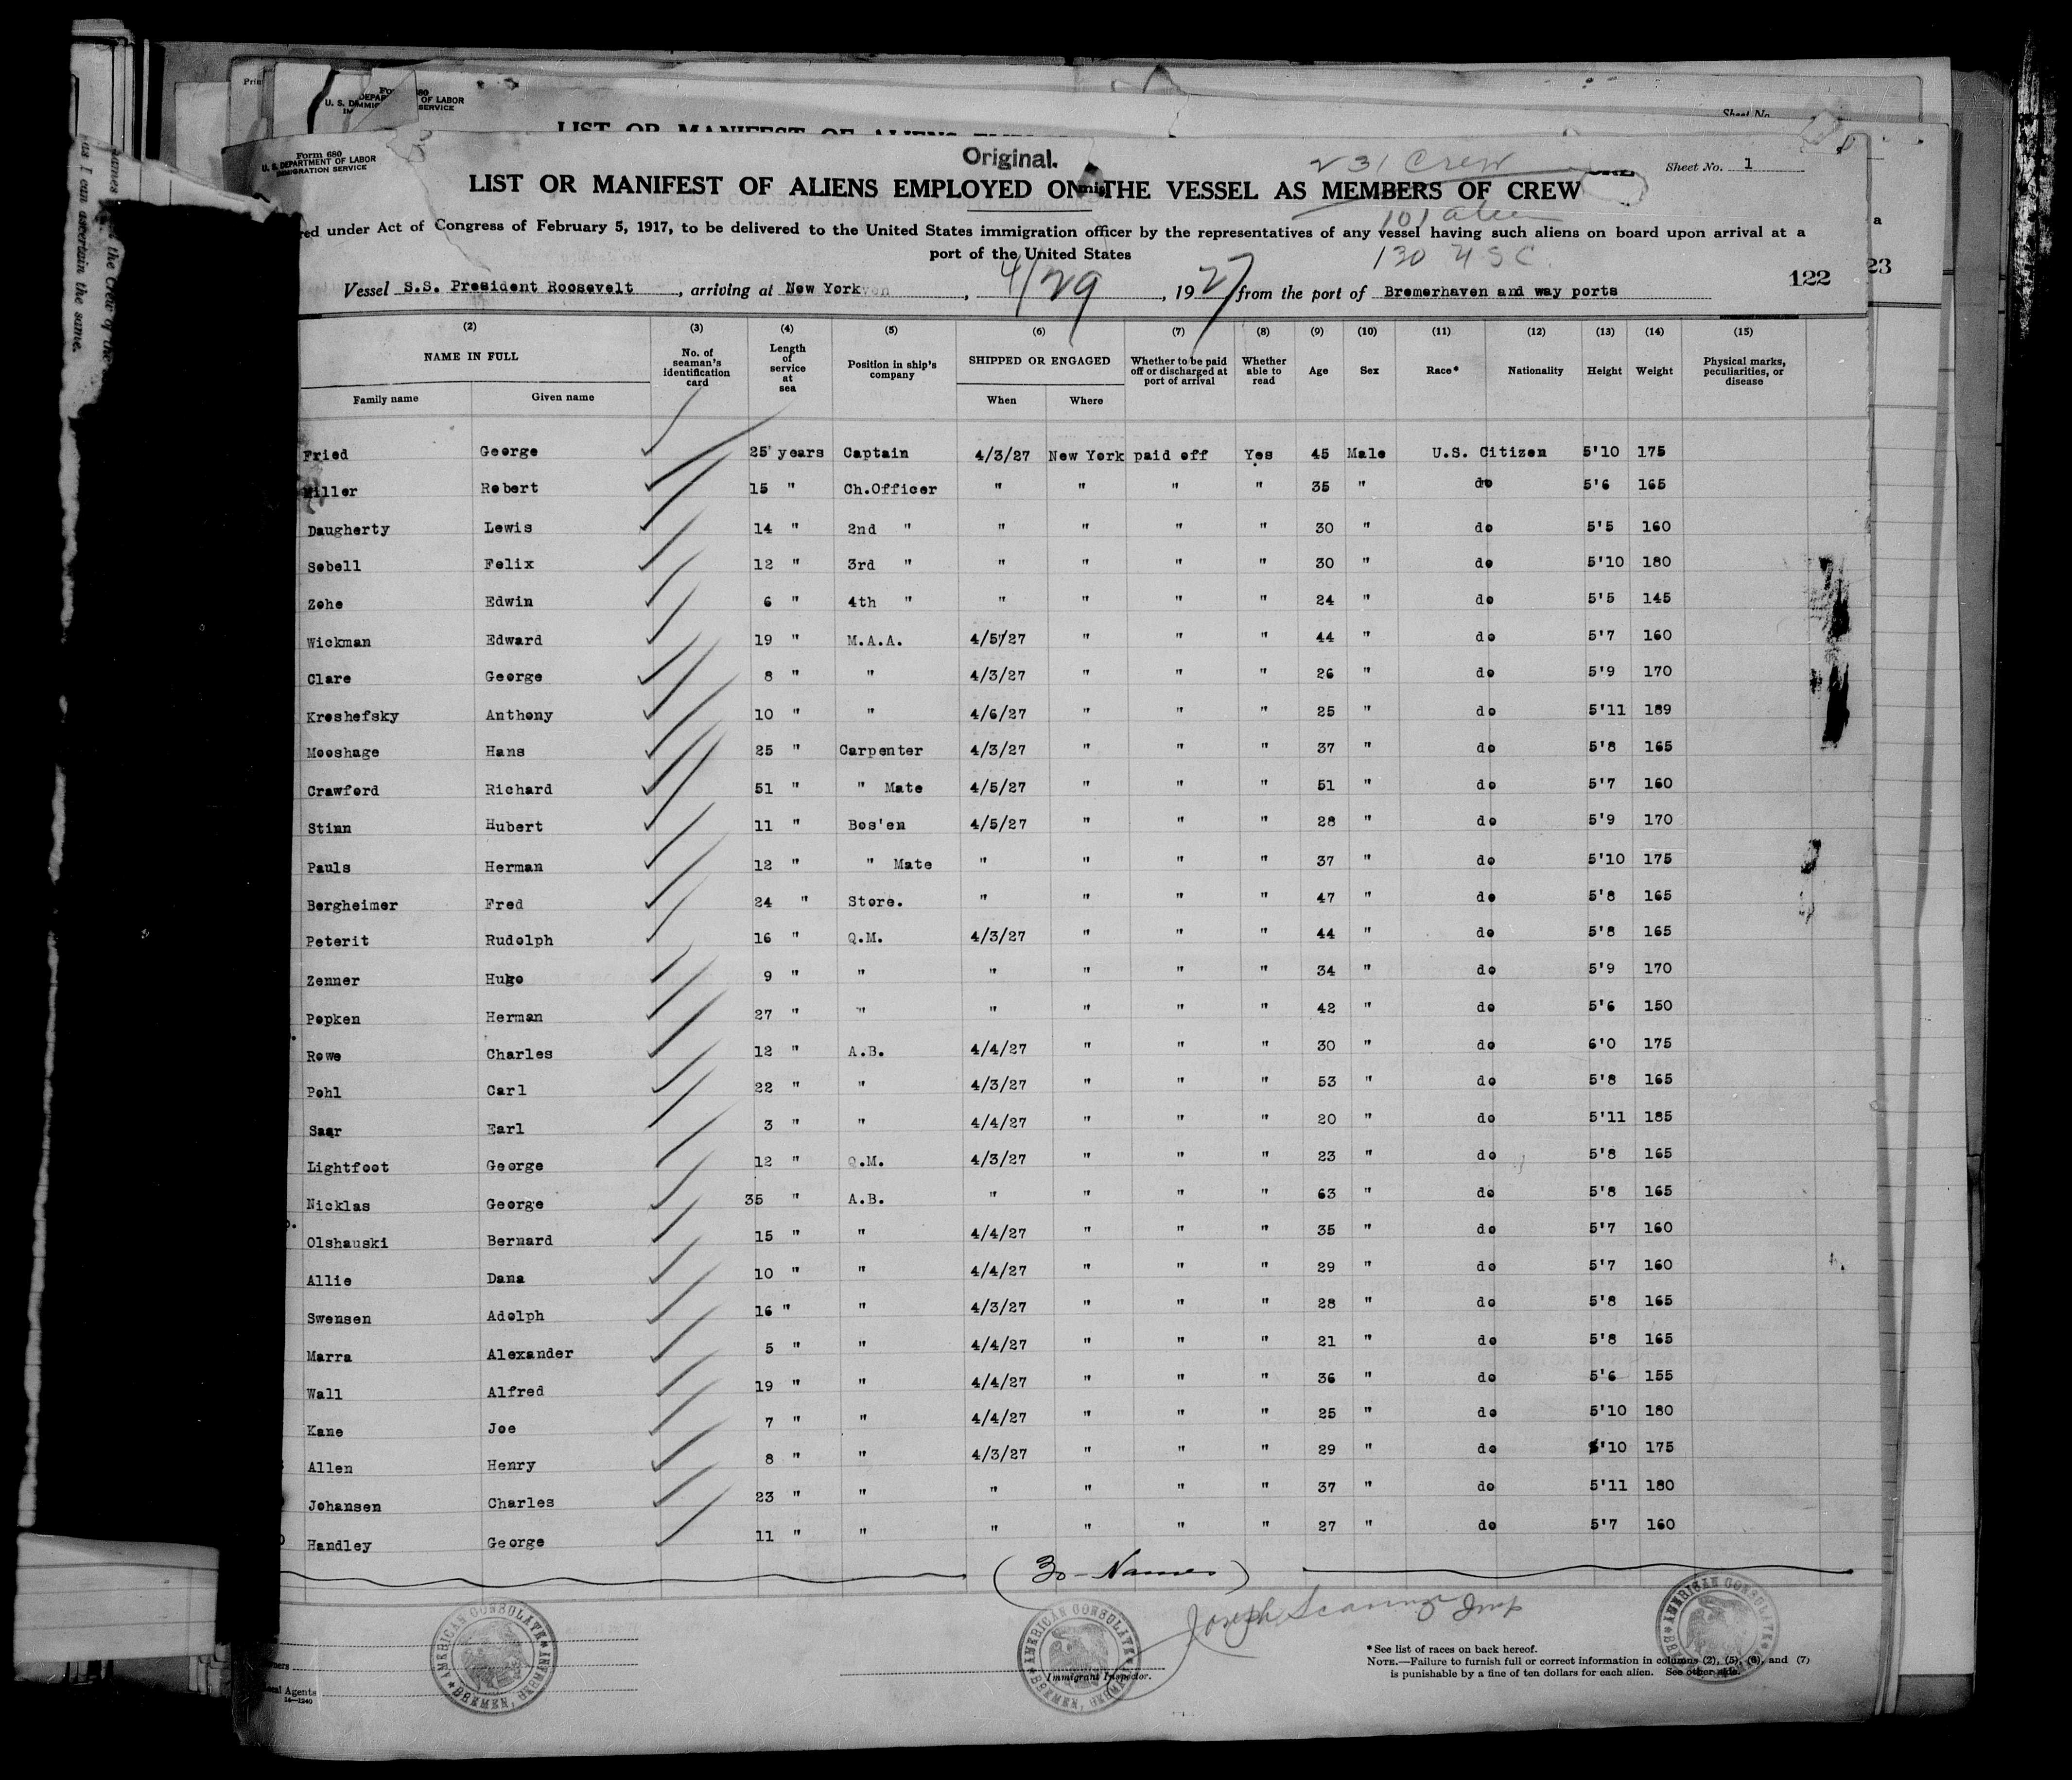 Form 680
U. S. DEPARTMENT OF LABOR
IMMIGRATION SERVICE
OF LABOR
SERVICE
Sheet No.
Original.
231 Crew
Sheet No. 1
LIST OR MANIFEST OF ALIENS EMPLOYED ON THE VESSEL AS MEMBERS OF CREW
101 alien
red under Act of Congress of February 5, 1917, to be delivered to the United States immigration officer by the representatives of any vessel having such aliens on board upon arrival at a
port of the United States
130 U S C.
122
23
Vessel S.S. President Roosevelt, arriving at New York, 4/29, 1927 from the port of Bremerhaven and way ports
(2) (3) (4) (5) (6) (7) (8) (9) (10) (11) (12) (13) (14) (15)
NAME IN FULL No. of seaman's identification card Length of service at sea Position in ship's company SHIPPED OR ENGAGED Whether to be paid off or discharged at port of arrival Whether able to read Age Sex Race* Nationality Height Weight Physical marks, peculiarities, or disease
Family name Given name When Where
Fried George 25 years Captain 4/3/27 New York paid off Yes 45 Male U.S. Citizen 5'10 175
Miller Robert 15 " Ch.Officer " " " " 35 " do 5'6 165
Daugherty Lewis 14 " 2nd " " " " " 30 " do 5'5 160
Sebell Felix 12 " 3rd " " " " " 30 " do 5'10 180
Zohe Edwin 6 " 4th " " " " " 24 " do 5'5 145
Wickman Edward 19 " M.A.A. 4/5/27 " " " 44 " do 5'7 160
Clare George 8 " " 4/3/27 " " " 26 " do 5'9 170
Kroshefsky Anthony 10 " " 4/6/27 " " " 25 " do 5'11 189
Mooshage Hans 25 " Carpenter 4/3/27 " " " 37 " do 5'8 165
Crawford Richard 51 " " Mate 4/5/27 " " " 51 " do 5'7 160
Stinn Hubert 11 " Bos'en 4/5/27 " " " 28 " do 5'9 170
Pauls Herman 12 " " Mate " " " " 37 " do 5'10 175
Bergheimer Fred 24 " Store. " " " " 47 " do 5'8 165
Peterit Rudolph 16 " Q.M. 4/3/27 " " " 44 " do 5'8 165
Zenner Hugo 9 " " " " " " 34 " do 5'9 170
Popken Herman 27 " " " " " " 42 " do 5'6 150
Rowe Charles 12 " A.B. 4/4/27 " " " 30 " do 6'0 175
Pohl Carl 22 " " 4/3/27 " " " 53 " do 5'8 165
Saar Earl 3 " " 4/4/27 " " " 20 " do 5'11 185
Lightfoot George 12 " Q.M. 4/3/27 " " " 23 " do 5'8 165
Nicklas George 35 " A.B. " " " " 63 " do 5'8 165
Olshauski Bernard 15 " " 4/4/27 " " " 35 " do 5'7 160
Allie Dana 10 " " 4/4/27 " " " 29 " do 5'7 160
Swensen Adolph 16 " " 4/3/27 " " " 28 " do 5'8 165
Marra Alexander 5 " " 4/4/27 " " " 21 " do 5'8 165
Wall Alfred 19 " " 4/4/27 " " " 36 " do 5'6 155
Kane Joe 7 " " 4/4/27 " " " 25 " do 5'10 180
Allen Henry 8 " " 4/3/27 " " " 29 " do 5'10 175
Johansen Charles 23 " " " " " " 37 " do 5'11 180
Handley George 11 " " " " " " 27 " do 5'7 160
(30 - Names)
Joseph Scannor Imp
AMERICAN CONSULATE BREMEN, GERMANY
AMERICAN CONSULATE BREMEN, GERMANY
AMERICAN CONSULATE BREMEN, GERMANY
Immigrant Inspector.
Agents
14—1240
*See list of races on back hereof.
NOTE.—Failure to furnish full or correct information in columns (2), (5), (6), and (7)
is punishable by a fine of ten dollars for each alien. See other side.
names the Crew of the
as I can ascertain the same.